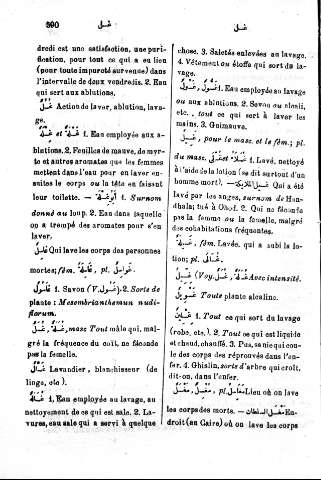 590
غسل
غسل
dredi est une satisfaction, une puri-
fication, pour tout ce qui a eu lien
(pour toute impureté survenue) dans
l'intervalle de deux vendredis. 2. Eau
qui sert aux ablutions.
غَسْل Action de laver, ablution, lava-
ge.
1. Eau employée aux a-
blutions. 2. Feuilles de mauve, de myr-
te et autres aromates que les femmes
mettent dans l'eau pour en laver en-
suites le corps ou la tête en faisant
leur toilette. — 1. Surnom
donné au loup. 2. Eau dans laquelle
on a trempé des aromates pour s'en
laver.
Qui lave les corps des personnes
mortes; fém. غَاسِلَة, pl. غَوَاسِل.
غَاسُول 1. Savon (V. غَسُول). 2. Sorte de
plante: Mesembrianthemum nudi-
florum.
masc Tout mâle qui, mal-
gré la fréquence du coït, ne féconde
pas la femelle.
غَسَّال Lavandier, blanchisseur (de
linge, etc.).
غُسَالَة 1. Eau employée au lavage, au
nettoyement de ce qui est sale. 2. La-
vures, eau sale qui a servi à quelque
chose. 3. Saletés enlevées au lavage.
4. Vêtement ou étoffe qui sort du la-
vage.
1. Eau employée au lavage
ou aux ablutions. 2. Savon ou alcali,
etc., tout ce qui sert à laver les
mains. 3. Guimauve.
غَسِيل, pour le masc. et le fém.; pl.
du masc. 1. Lavé, nettoyé
à l'aide de la lotion (se dit surtout d'un
homme mort). — غسيل الملائكة Qui a été
lavé par les anges, surnom de Han-
dhala; tué à Ohod. 2. Qui ne féconde
pas la femme ou la femelle, malgré
des cohabitations fréquentes.
غَسِيلَة, fém. Lavée, qui a subi la lo-
tion; pl.
(Voy. غسل) Avec intensité.
Toute plante alcaline.
غِسْلِين 1. Tout ce qui sort du lavage
(robe, etc.). 2. Tout ce qui est liquide
et chaud, chauffé. 3. Pus, sanie qui cou-
le des corps des réprouvés dans l'en-
fer. 4. Ghislin, sorte d'arbre qui croît,
dit-on, dans l'enfer.
pl. مَغَاسِل Lieu où on lave
les corps des morts. — مغسل السلطان En-
droit (au Caire) où on lave les corps